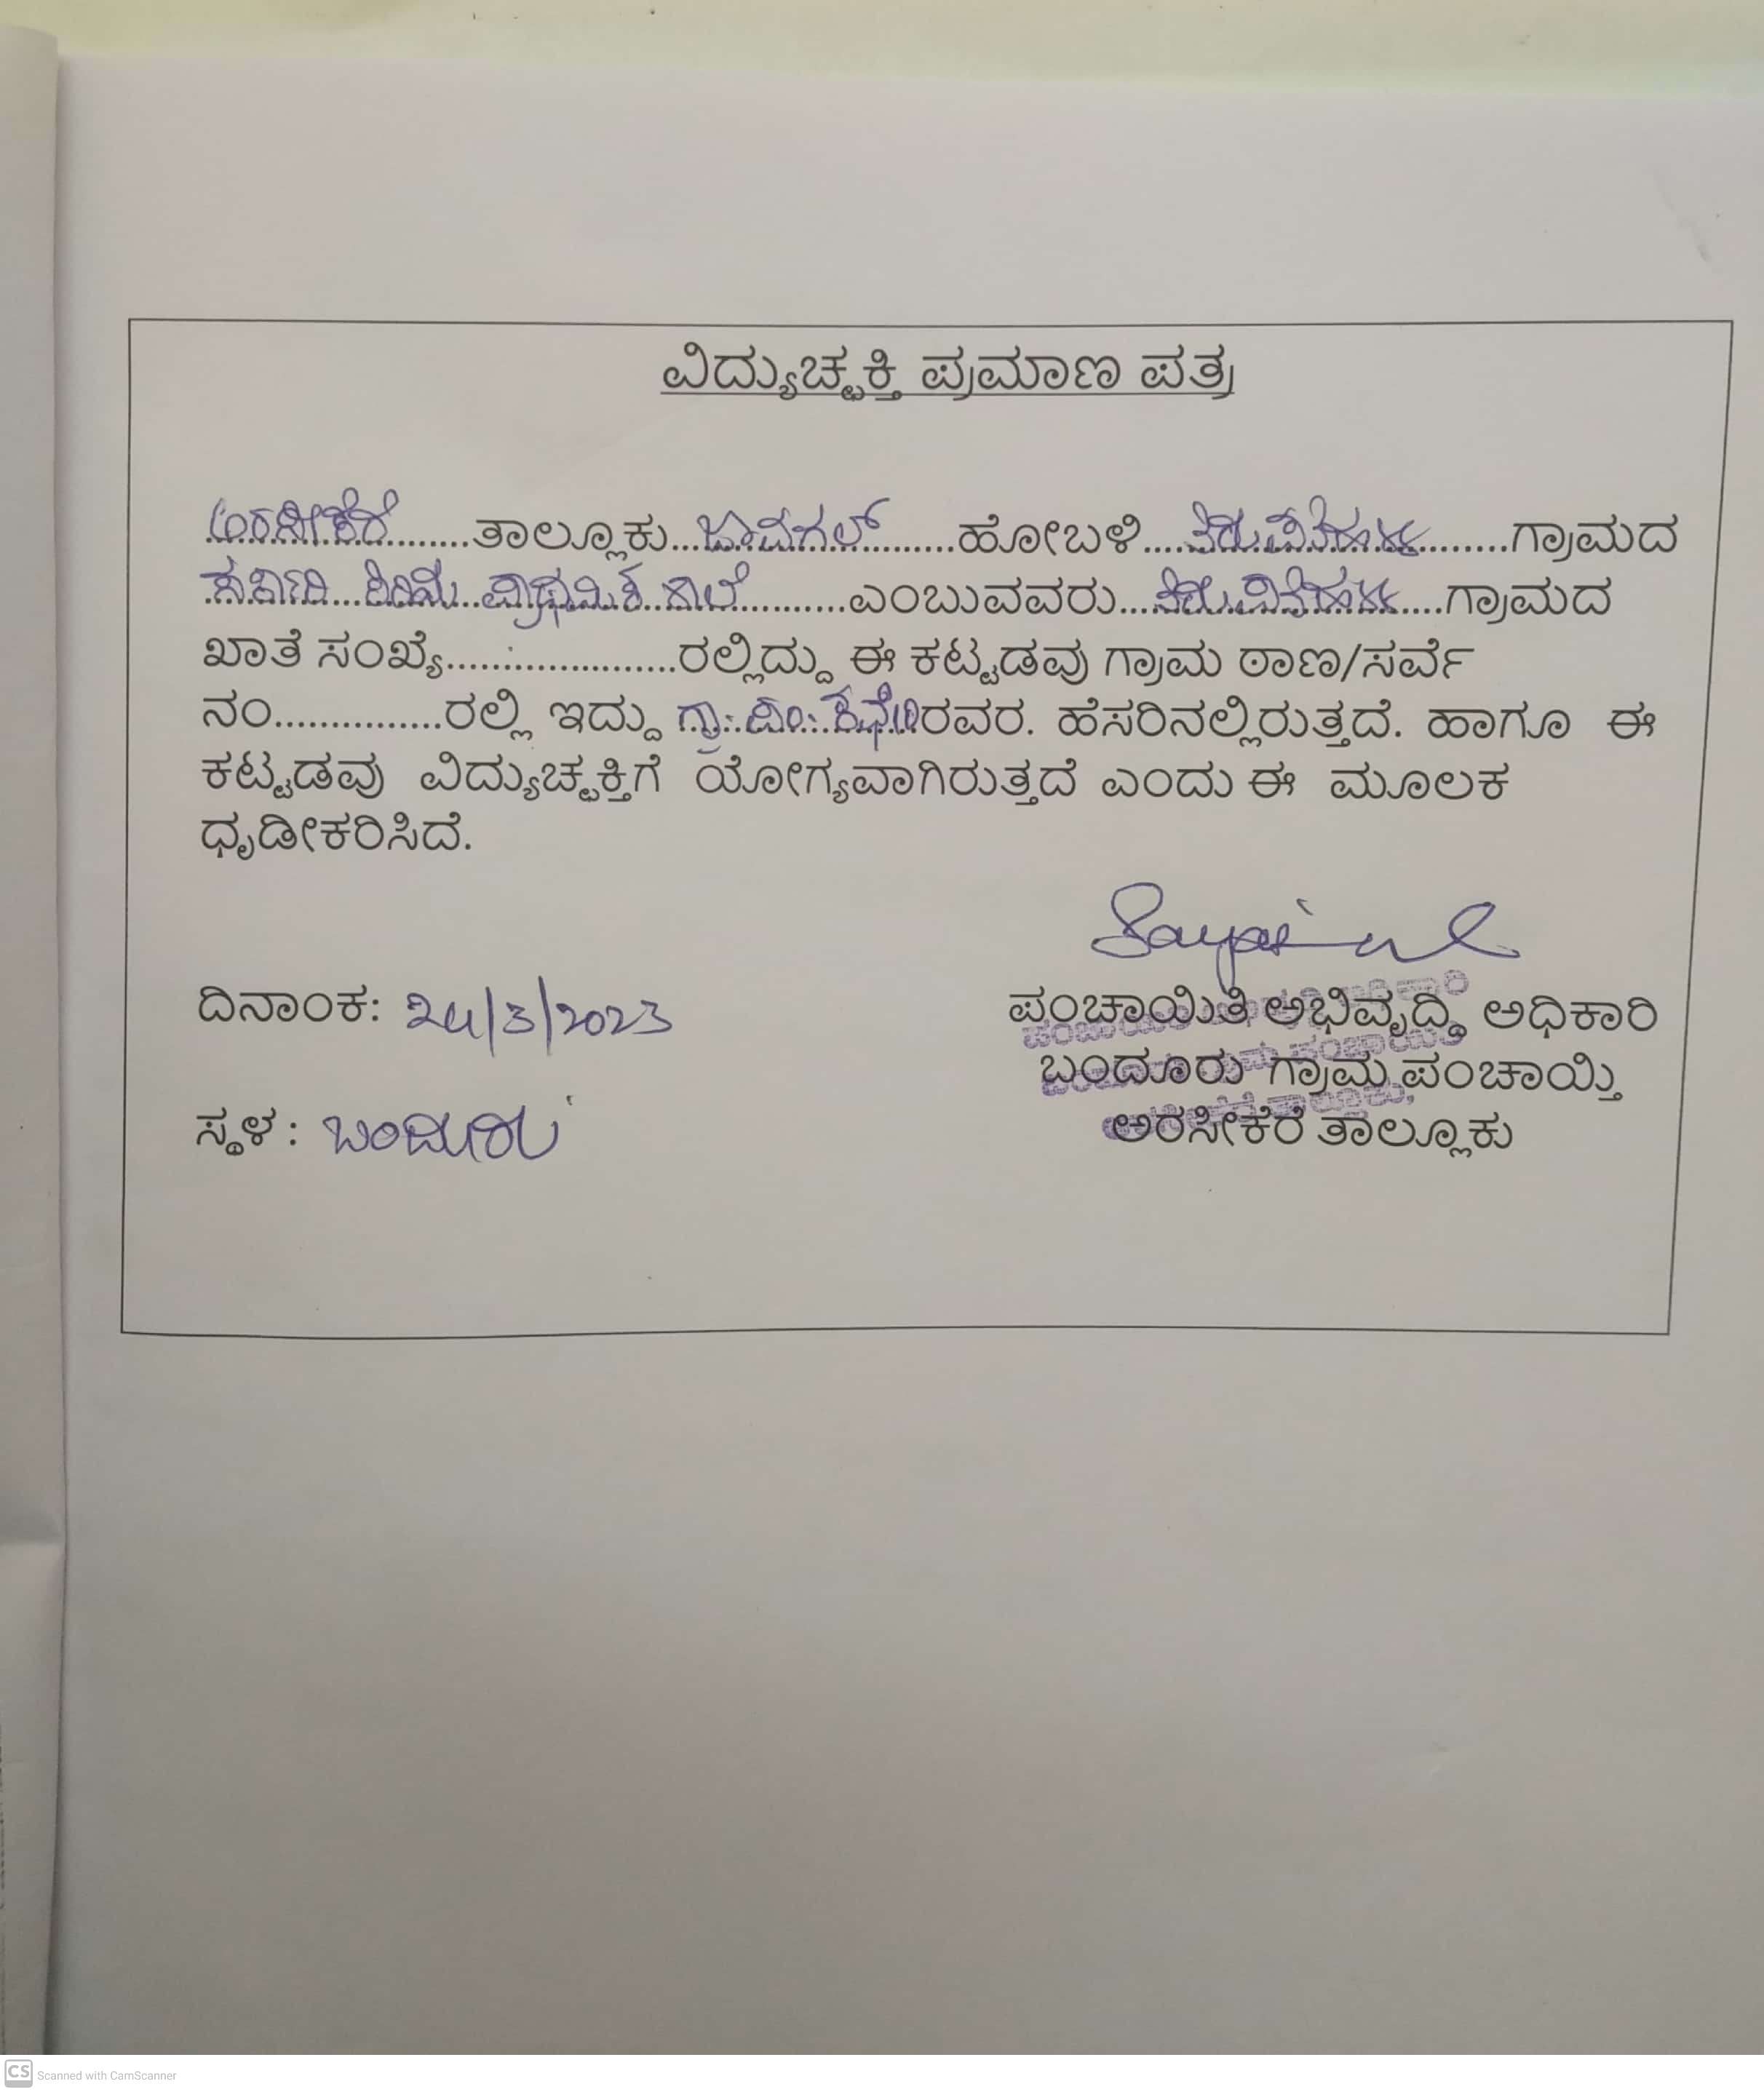 ವಿದ್ಯುಚ್ಛಕ್ತಿ ಪ್ರಮಾಣ ಪತ್ರ
ಅರಸೀಕೆರೆ ತಾಲ್ಲೂಕು ಜಾವಗಲ್ ಹೋಬಳಿ ಗ್ರಾಮದ
ಪ್ರಾಥಮಿಕ ಶಾಲೆ ಎಂಬುವವರು ಗ್ರಾಮದ
ಖಾತೆ ಸಂಖ್ಯೆ.....................ರಲ್ಲಿದ್ದು ಈ ಕಟ್ಟಡವು ಗ್ರಾಮ ಠಾಣ/ಸರ್ವೆ
ನಂ...............ರಲ್ಲಿ ಇದ್ದು ಗ್ರಾ. ಪಂ. ಕಛೇರಿರವರ. ಹೆಸರಿನಲ್ಲಿರುತ್ತದೆ. ಹಾಗೂ ಈ
ಕಟ್ಟಡವು ವಿದ್ಯುಚ್ಛಕ್ತಿಗೆ ಯೋಗ್ಯವಾಗಿರುತ್ತದೆ ಎಂದು ಈ ಮೂಲಕ
ಧೃಡೀಕರಿಸಿದೆ.
ದಿನಾಂಕ: 24/3/2023
ಪಂಚಾಯಿತಿ ಅಭಿವೃದ್ಧಿ ಅಧಿಕಾರಿ
ಬಂದೂರು ಗ್ರಾಮ ಪಂಚಾಯ್ತಿ
ಸ್ಥಳ : ಬಂದೂರು
ಅರಸೀಕೆರೆ ತಾಲ್ಲೂಕು
CS Scanned with CamScanner